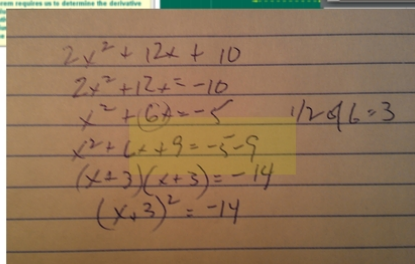 rem requires us to determine the derivative
2x² + 12x + 10
2x² + 12x = -10
x² + 6x = -5 1/2 of 6 = 3
x² + 6x + 9 = -5 - 9
(x + 3)(x + 3) = -14
(x + 3)² = -14